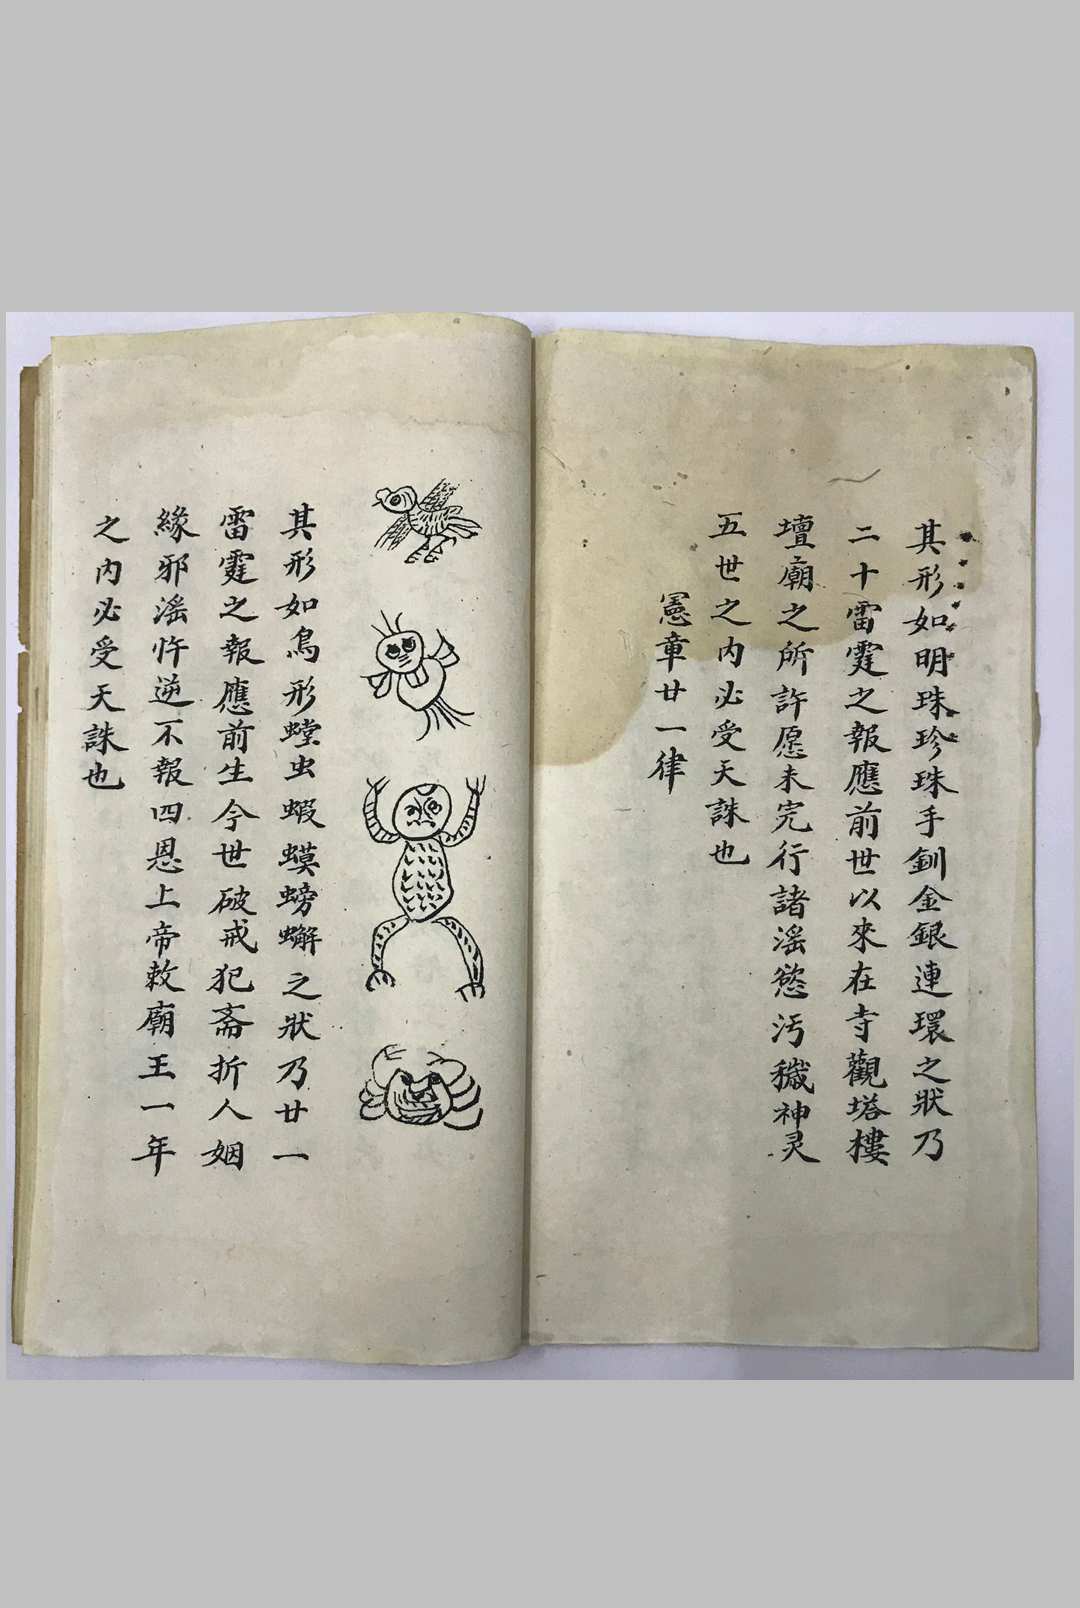 其形如明珠珍珠手釧金銀連環之狀乃
二十雷霆之報應前世以來在寺觀塔樓
壇廟之所許愿未完行諸滛慾污穢神灵
五世之内必受天誅也
憲章廿一律
其形如鳥形螳虫蝦蟆螃蠏之狀乃廿一
雷霆之報應前生今世破戒犯斋折人姻
緣邪滛忤逆不報四恩上帝敕廟王一年
之内必受天誅也